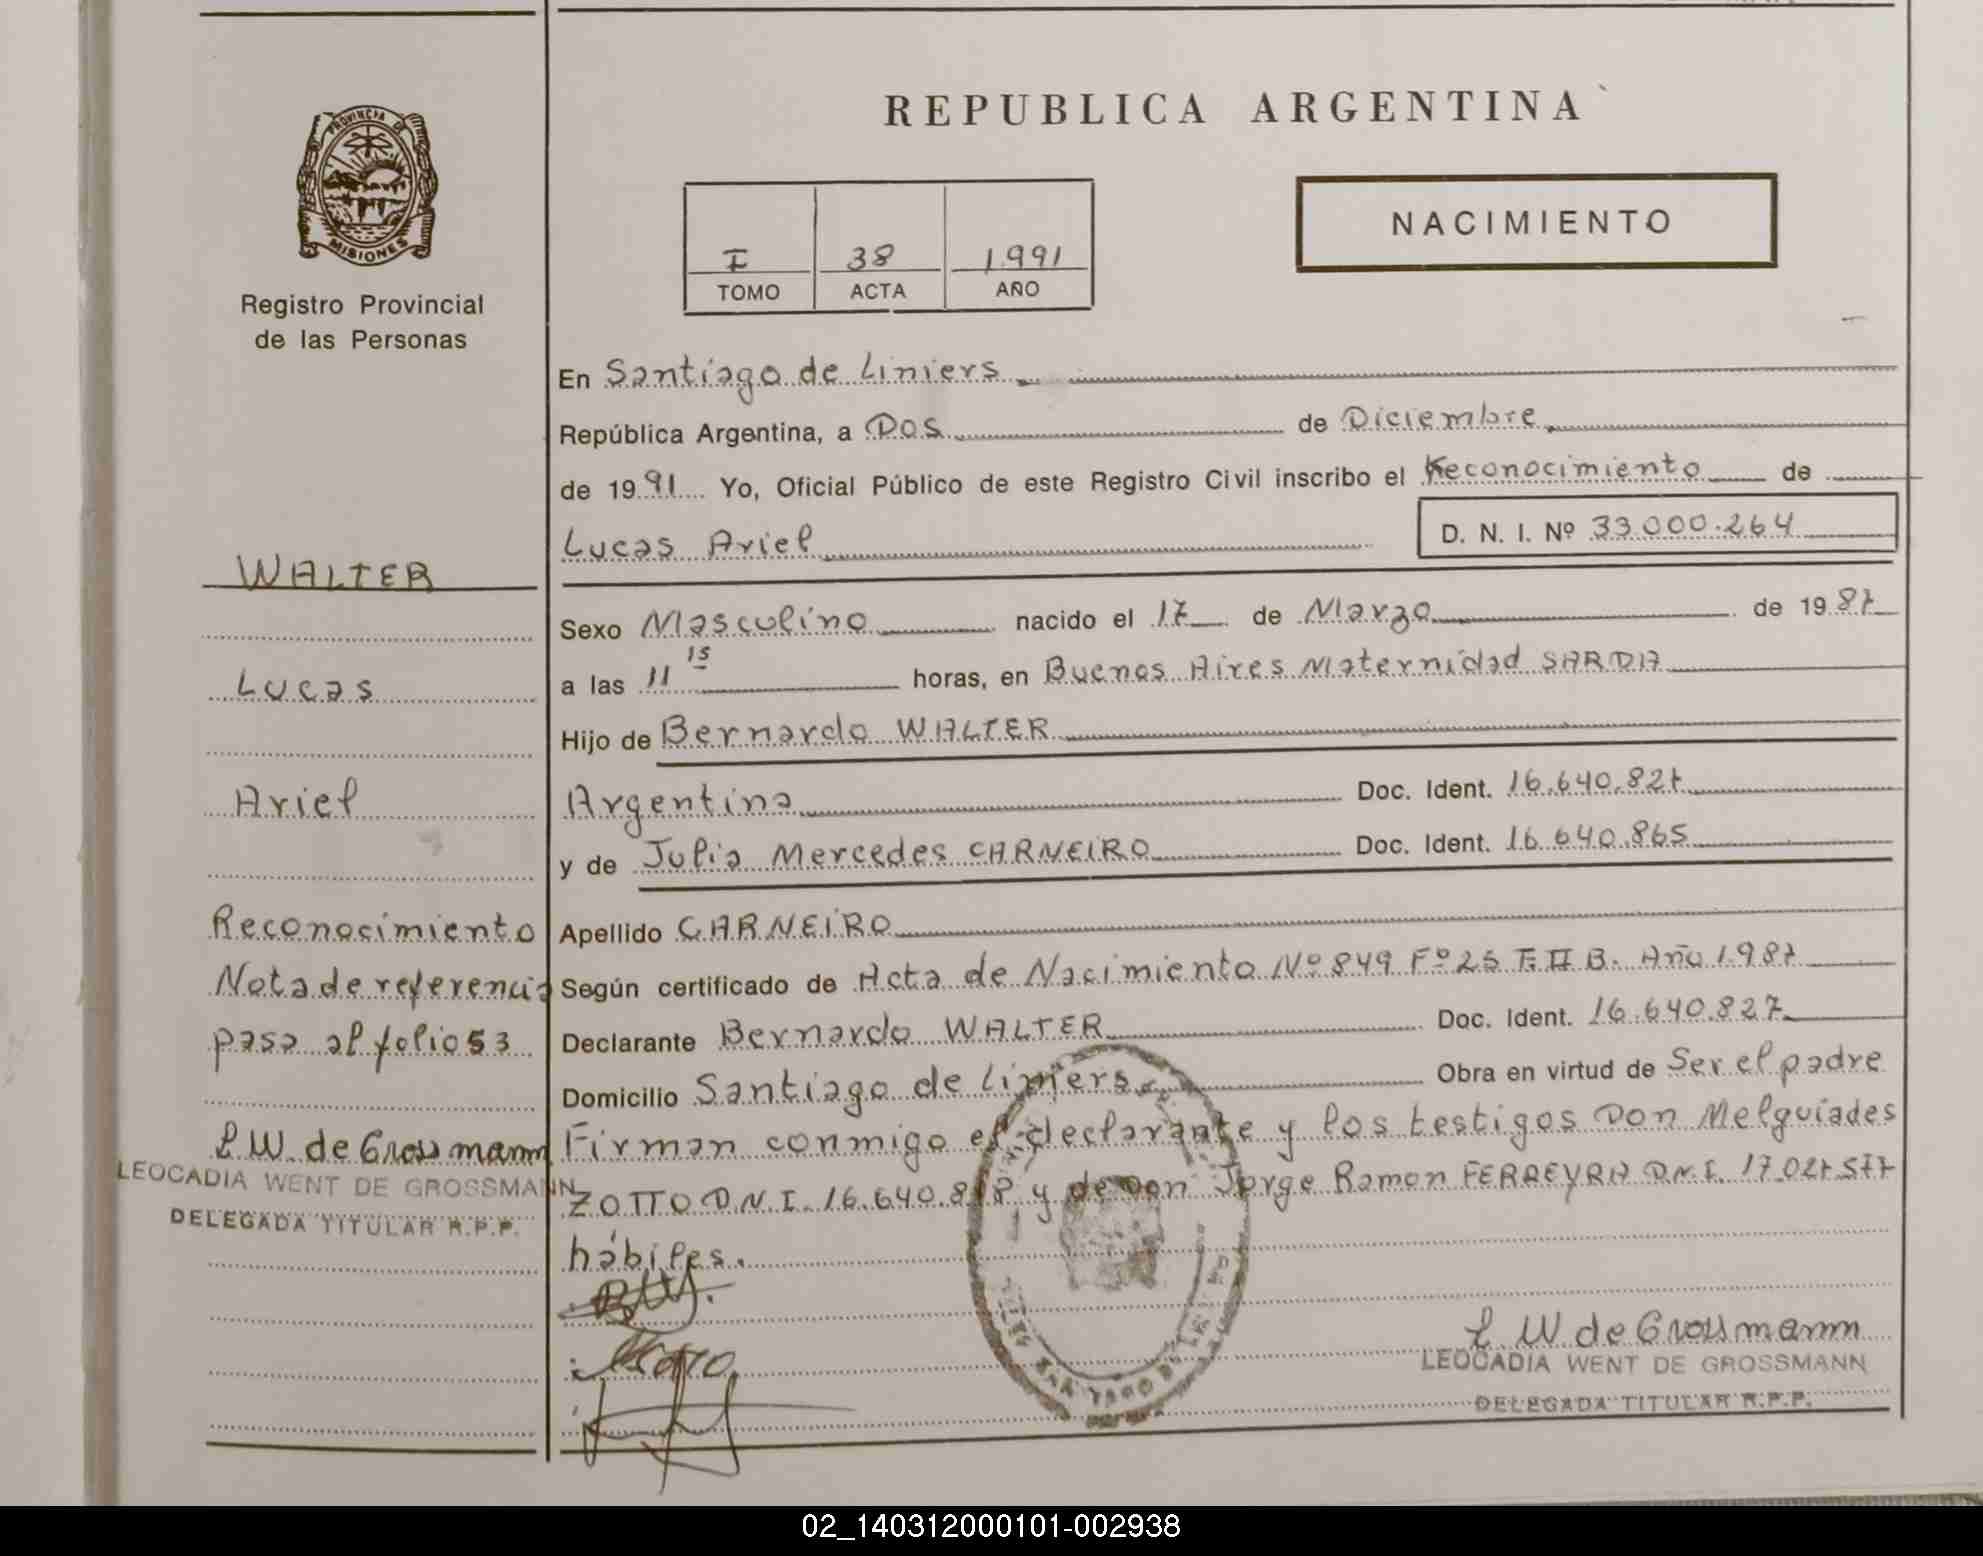 PROVINCIA DE
MISIONES
Registro Provincial
de las Personas
WALTER
Lucas
Ariel
Reconocimiento
Nota de referencia
pasa al folio 53
L W. de Grossmann
LEOCADIA WENT DE GROSSMANN
DELEGADA TITULAR R.P.P.
REPUBLICA ARGENTINA
I 38 1.991
TOMO ACTA AÑO
NACIMIENTO
En Santiago de Liniers
República Argentina, a Dos de Diciembre
de 1991 Yo, Oficial Público de este Registro Civil inscribo el Reconocimiento de
Lucas Ariel D. N. I. Nº 33.000.264
Sexo Masculino nacido el 17 de Marzo de 1987
a las 11 15 horas, en Buenos Aires Maternidad SARDA
Hijo de Bernardo WALTER
Argentina Doc. Ident. 16.640.827
y de Julia Mercedes CARNEIRO Doc. Ident. 16.640.865
Apellido CARNEIRO
Según certificado de Acta de Nacimiento Nº 849 Fº 25 T. II B. Año 1.987
Declarante Bernardo WALTER Doc. Ident. 16.640.827
Domicilio Santiago de Liniers Obra en virtud de Ser el padre
Firman conmigo el declarante y los testigos Don Melguíades
ZOTTO D.N.I. 16.640. y de Don Jorge Ramon FERREYRA D.N.I. 17.027.577
hábiles.
L W de Grossmann
LEOCADIA WENT DE GROSSMANN
DELEGADA TITULAR R.P.P.
02_140312000101-002938